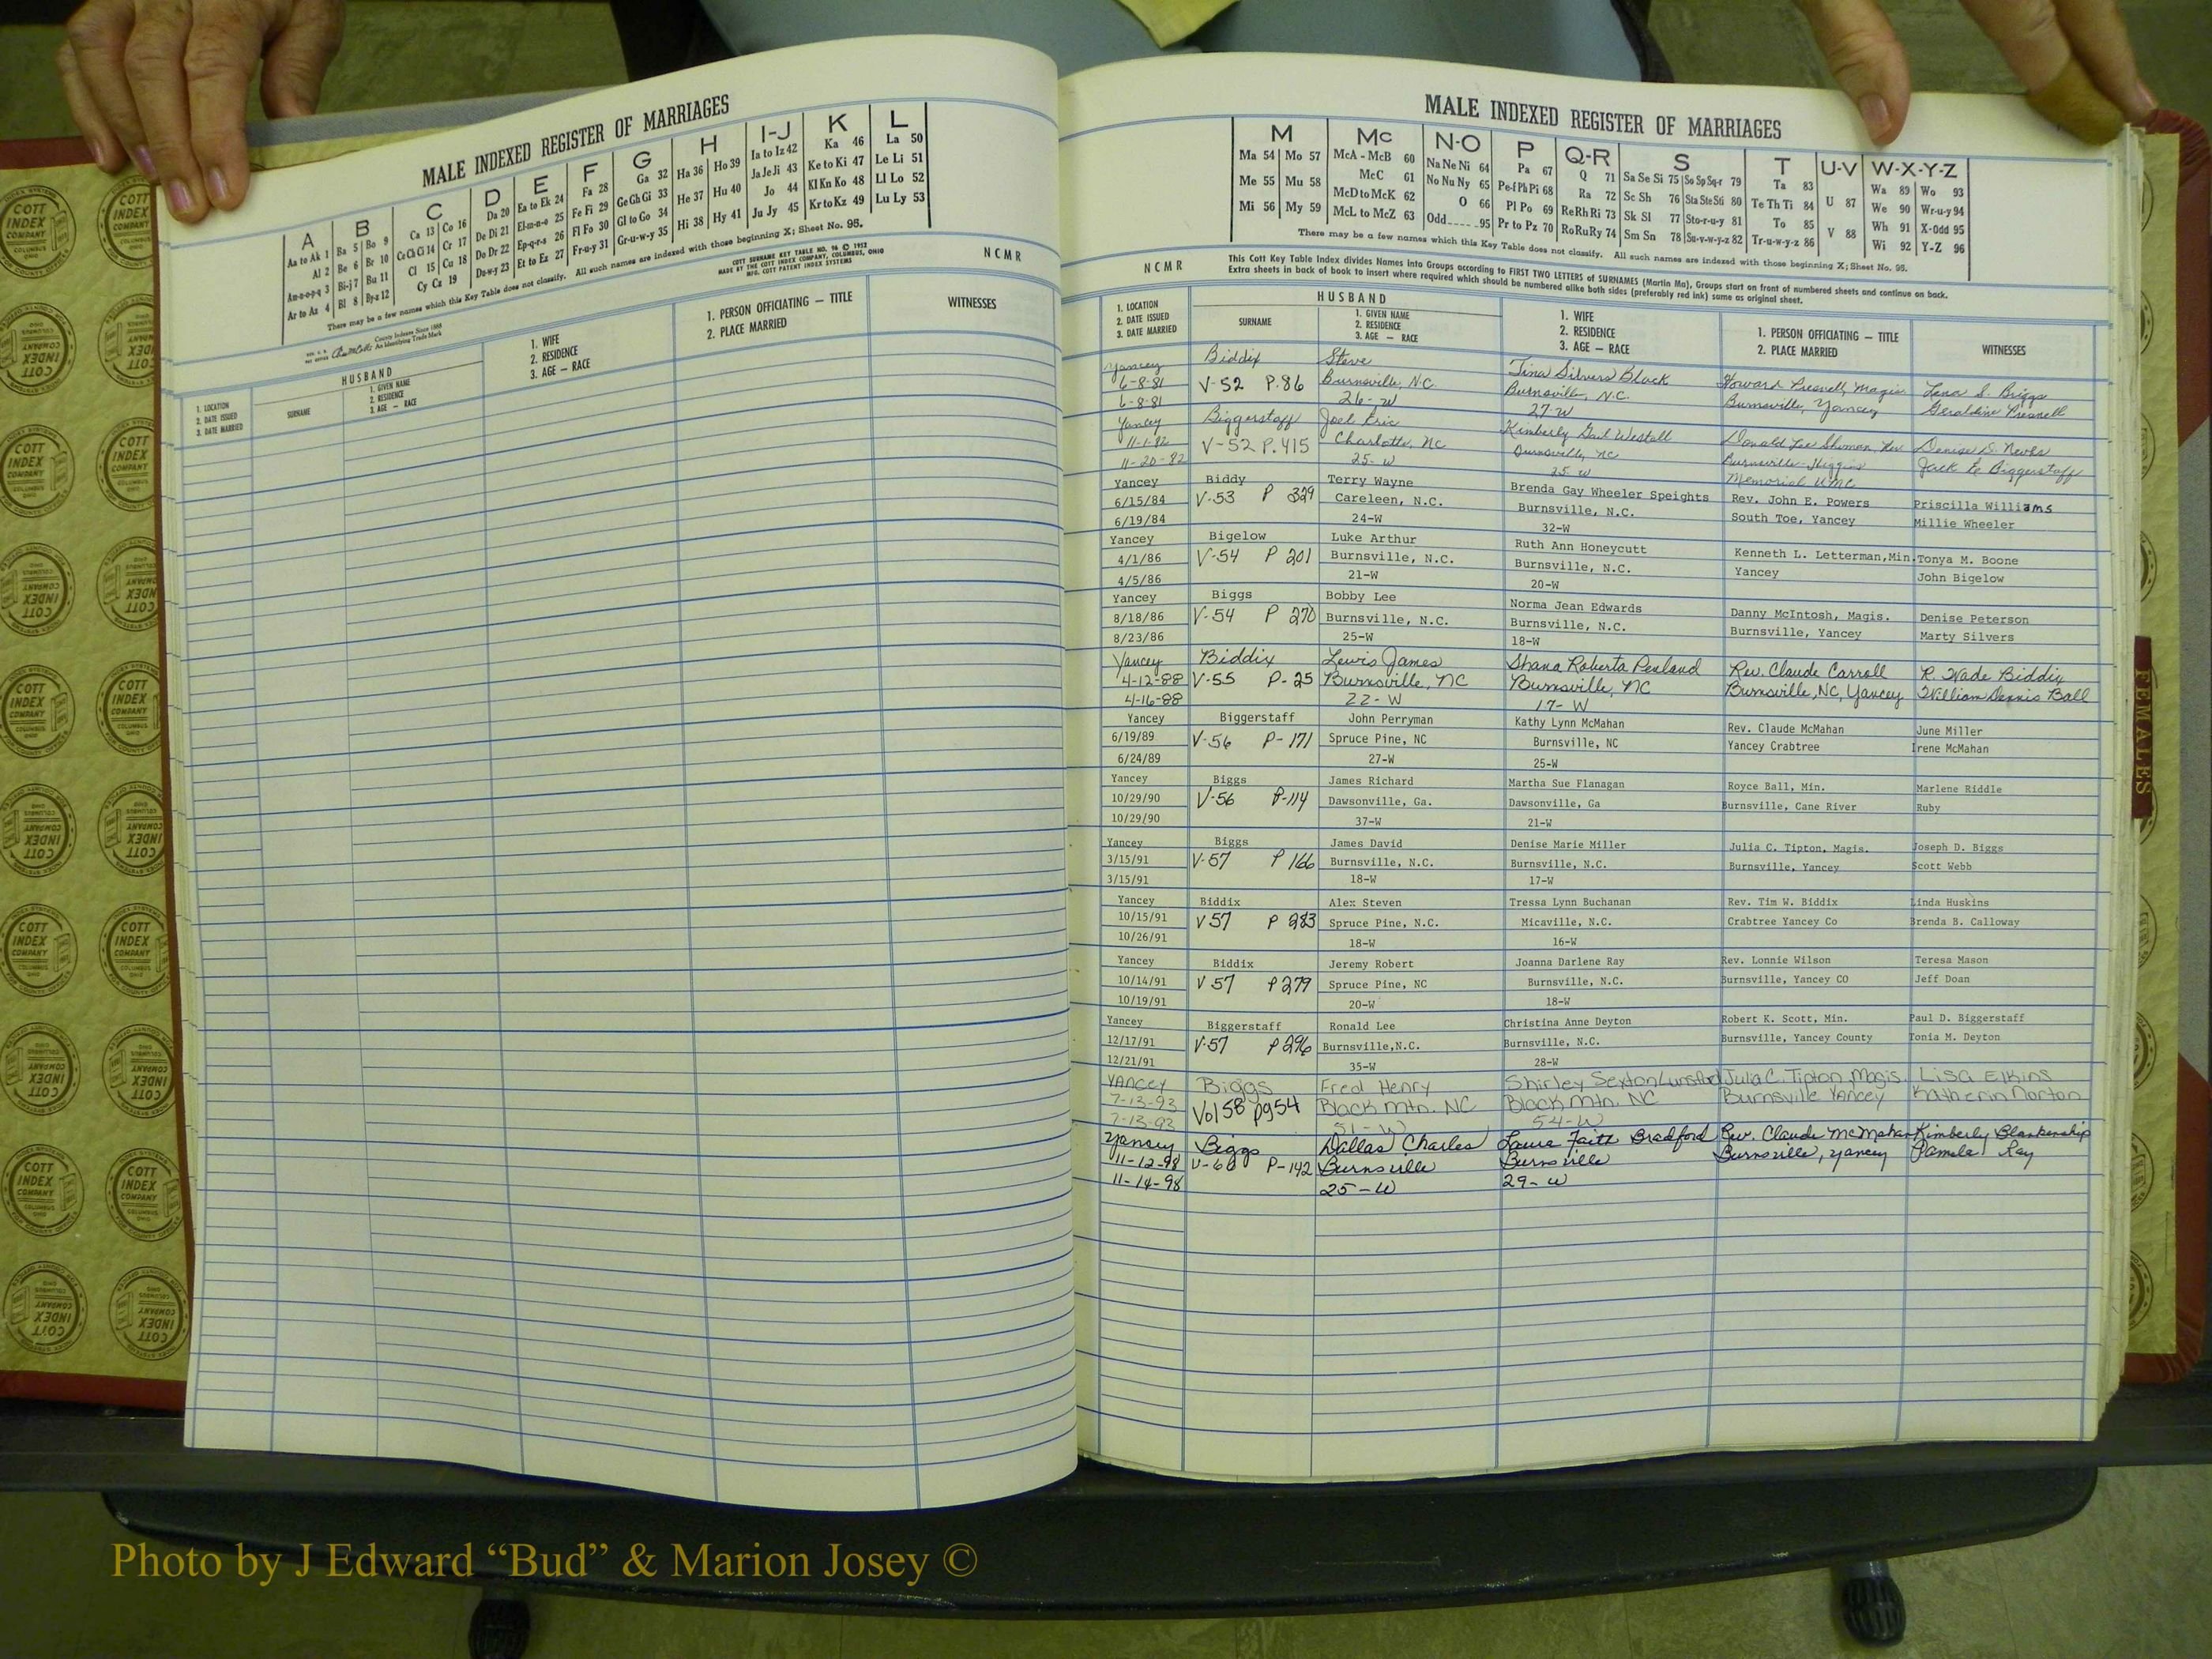 MALE INDEXED REGISTER OF MARRIAGES
A B C D E F G H I-J K L
Aa to Ak 1 Ba 5 Bo 9 Ca 13 Co 16 Da 20 Ea to Ek 24 Fa 28 Ga 32 Ha 36 Ho 39 Ia to Iz 42 Ka 46 La 50
Al 2 Be 6 Br 10 Ce Ch Ci 14 Cr 17 De Di 21 El-m-n-o 25 Fe Fi 29 Ge Gh Gi 33 He 37 Hu 40 Ja Je Ji 43 Ke to Ki 47 Le Li 51
Am-n-o-p-q 3 Bi-j 7 Bu 11 Cl 15 Cu 18 Do Dr 22 Ep-q-r-s 26 Fl Fo 30 Gl to Go 34 Hi 38 Hy 41 Jo 44 Kl Kn Ko 48 Ll Lo 52
Ar to Az 4 Bl 8 By-z 12 Cy Cz 19 Du-w-y 23 Et to Ez 27 Fr-u-y 31 Gr-u-w-y 35 Ju Jy 45 Kr to Kz 49 Lu Ly 53
There may be a few names which this Key Table does not classify. All such names are indexed with those beginning X; Sheet No. 95.
COTT SURNAME KEY TABLE NO. 96 © 1952
MADE BY THE COTT INDEX COMPANY, COLUMBUS, OHIO
MFG. COTT PATENT INDEX SYSTEMS
NCMR
County Indexes Since 1888
An Identifying Trade Mark
1. LOCATION
2. DATE ISSUED
3. DATE MARRIED
HUSBAND
SURNAME
1. GIVEN NAME
2. RESIDENCE
3. AGE — RACE
1. WIFE
2. RESIDENCE
3. AGE — RACE
1. PERSON OFFICIATING — TITLE
2. PLACE MARRIED
WITNESSES
MALE INDEXED REGISTER OF MARRIAGES
M Mc N-O P Q-R S T U-V W-X-Y-Z
Ma 54 Mo 57 McA - McB 60 Na Ne Ni 64 Pa 67 Q 71 Sa Se Si 75 So Sp Sq-r 79 Ta 83 U 87 Wa 89 Wo 93
Me 55 Mu 58 McC 61 No Nu Ny 65 Pe-f Ph Pi 68 Ra 72 Sc Sh 76 Sta Ste Sti 80 Te Th Ti 84 V 88 We 90 Wr-u-y 94
Mi 56 My 59 McD to McK 62 O 66 Pl Po 69 Re Rh Ri 73 Sk Sl 77 Sto-r-u-y 81 To 85 Wh 91 X-Odd 95
McL to McZ 63 Odd 95 Pr to Pz 70 Ro Ru Ry 74 Sm Sn 78 Su-v-w-y-z 82 Tr-u-w-y-z 86 Wi 92 Y-Z 96
There may be a few names which this Key Table does not classify. All such names are indexed with those beginning X; Sheet No. 95.
NCMR
This Cott Key Table Index divides Names into Groups according to FIRST TWO LETTERS of SURNAMES (Martin Ma), Groups start on front of numbered sheets and continue on back.
Extra sheets in back of book to insert where required which should be numbered alike both sides (preferably red ink) same as original sheet.
1. LOCATION
2. DATE ISSUED
3. DATE MARRIED
HUSBAND
SURNAME
1. GIVEN NAME
2. RESIDENCE
3. AGE - RACE
1. WIFE
2. RESIDENCE
3. AGE — RACE
1. PERSON OFFICIATING — TITLE
2. PLACE MARRIED
WITNESSES
Yancey Biddix Steve Tina Silvers Black Howard Presnell, Magis Lena S. Briggs
6-8-81 V-52 P.86 Burnsville, N.C. Burnsville, N.C. Burnsville, Yancey Geraldine Presnell
6-8-81 26-W 27-W
Yancey Biggerstaff Joel Eric Kimberly Gail Westall Donald Lee Shuman, Rev. Denise D.
11-1-82 V-52 P.415 Charlotte, NC Burnsville, NC Burnsville-Higgins Jack E. Biggerstaff
11-20-82 25-W 25 W Memorial UMC
Yancey Biddy Terry Wayne Brenda Gay Wheeler Speights Rev. John E. Powers Priscilla Williams
6/15/84 V-53 P 329 Careleen, N.C. Burnsville, N.C. South Toe, Yancey Millie Wheeler
6/19/84 24-W 32-W
Yancey Bigelow Luke Arthur Ruth Ann Honeycutt Kenneth L. Letterman,Min. Tonya M. Boone
4/1/86 V-54 P 201 Burnsville, N.C. Burnsville, N.C. Yancey John Bigelow
4/5/86 21-W 20-W
Yancey Biggs Bobby Lee Norma Jean Edwards Danny McIntosh, Magis. Denise Peterson
8/18/86 V-54 P 270 Burnsville, N.C. Burnsville, N.C. Burnsville, Yancey Marty Silvers
8/23/86 25-W 18-W
Yancey Biddix Lewis James Shana Roberta Penland Rev. Claude Carroll R. Wade Biddix
4-12-88 V-55 P-25 Burnsville, NC Burnsville, NC Burnsville, NC, Yancey William Dennis Ball
4-16-88 22-W 17-W
Yancey Biggerstaff John Perryman Kathy Lynn McMahan Rev. Claude McMahan June Miller
6/19/89 V-56 P-171 Spruce Pine, NC Burnsville, NC Yancey Crabtree Irene McMahan
6/24/89 27-W 25-W
Yancey Biggs James Richard Martha Sue Flanagan Royce Ball, Min. Marlene Riddle
10/29/90 V-56 P-114 Dawsonville, Ga. Dawsonville, Ga Burnsville, Cane River Ruby
10/29/90 37-W 21-W
Yancey Biggs James David Denise Marie Miller Julia C. Tipton, Magis. Joseph D. Biggs
3/15/91 V-57 P 166 Burnsville, N.C. Burnsville, N.C. Burnsville, Yancey Scott Webb
3/15/91 18-W 17-W
Yancey Biddix Alex Steven Tressa Lynn Buchanan Rev. Tim W. Biddix Linda Huskins
10/15/91 V57 P 283 Spruce Pine, N.C. Micaville, N.C. Crabtree Yancey Co Brenda B. Calloway
10/26/91 18-W 16-W
Yancey Biddix Jeremy Robert Joanna Darlene Ray Rev. Lonnie Wilson Teresa Mason
10/14/91 V 57 P 279 Spruce Pine, NC Burnsville, N.C. Burnsville, Yancey CO Jeff Doan
10/19/91 20-W 18-W
Yancey Biggerstaff Ronald Lee Christina Anne Deyton Robert K. Scott, Min. Paul D. Biggerstaff
12/17/91 V-57 P 296 Burnsville,N.C. Burnsville, N.C. Burnsville, Yancey County Tonia M. Deyton
12/21/91 35-W 28-W
YANCEY Biggs Fred Henry Shirley Sexton Lunsford Julia C. Tipton, Magis. Lisa Elkins
7-13-93 Vol 58 pg 54 Black Mtn. NC Black Mtn. NC Burnsville Yancey Katherin Norton
7-13-93 51-W 54-W
Yancey Biggs Dallas Charles Laura Faith Bradford Rev. Claude McMahan Kimberly Blankenship
11-12-98 V-60 P-142 Burnsville Burnsville Burnsville, Yancey Pamela Ray
11-14-98 25-W 29-W
FEMALES
COTT INDEX COMPANY
Photo by J Edward “Bud” & Marion Josey ©